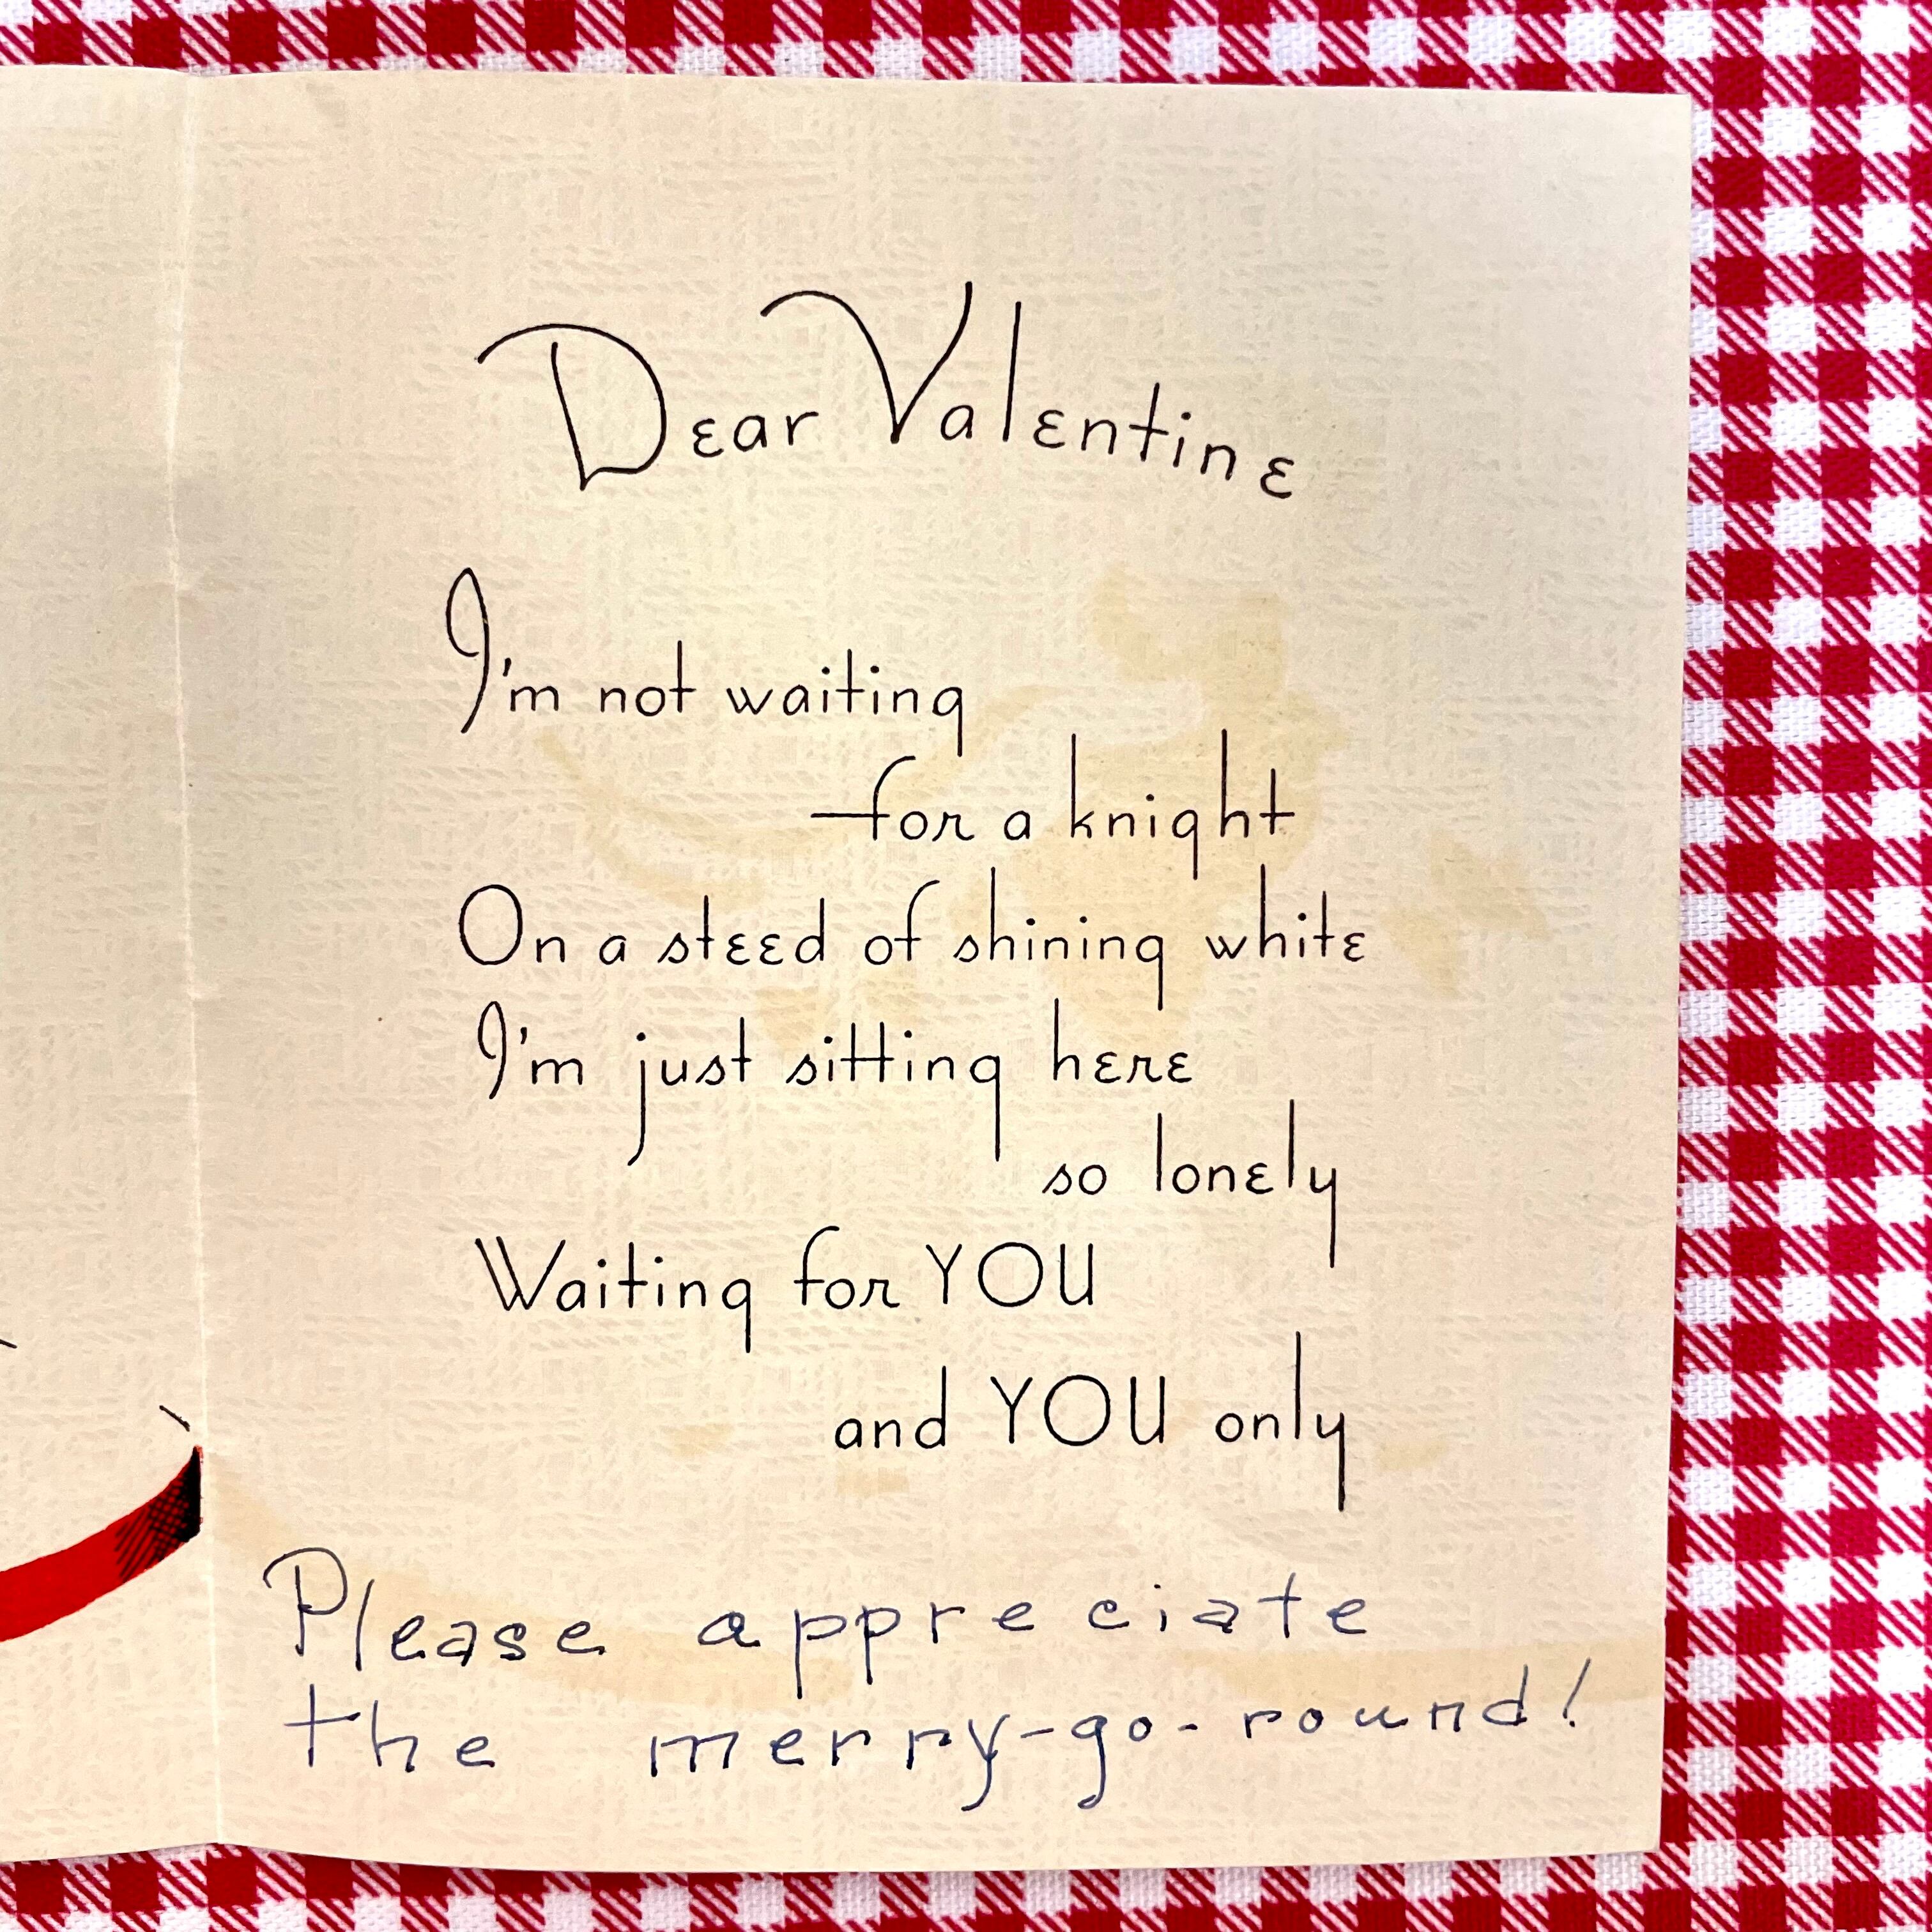 Dear Valentine
I'm not waiting
for a knight
On a steed of shining white
I'm just sitting here
so lonely
Waiting for YOU
and YOU only
Please appreciate
the merry-go-round!